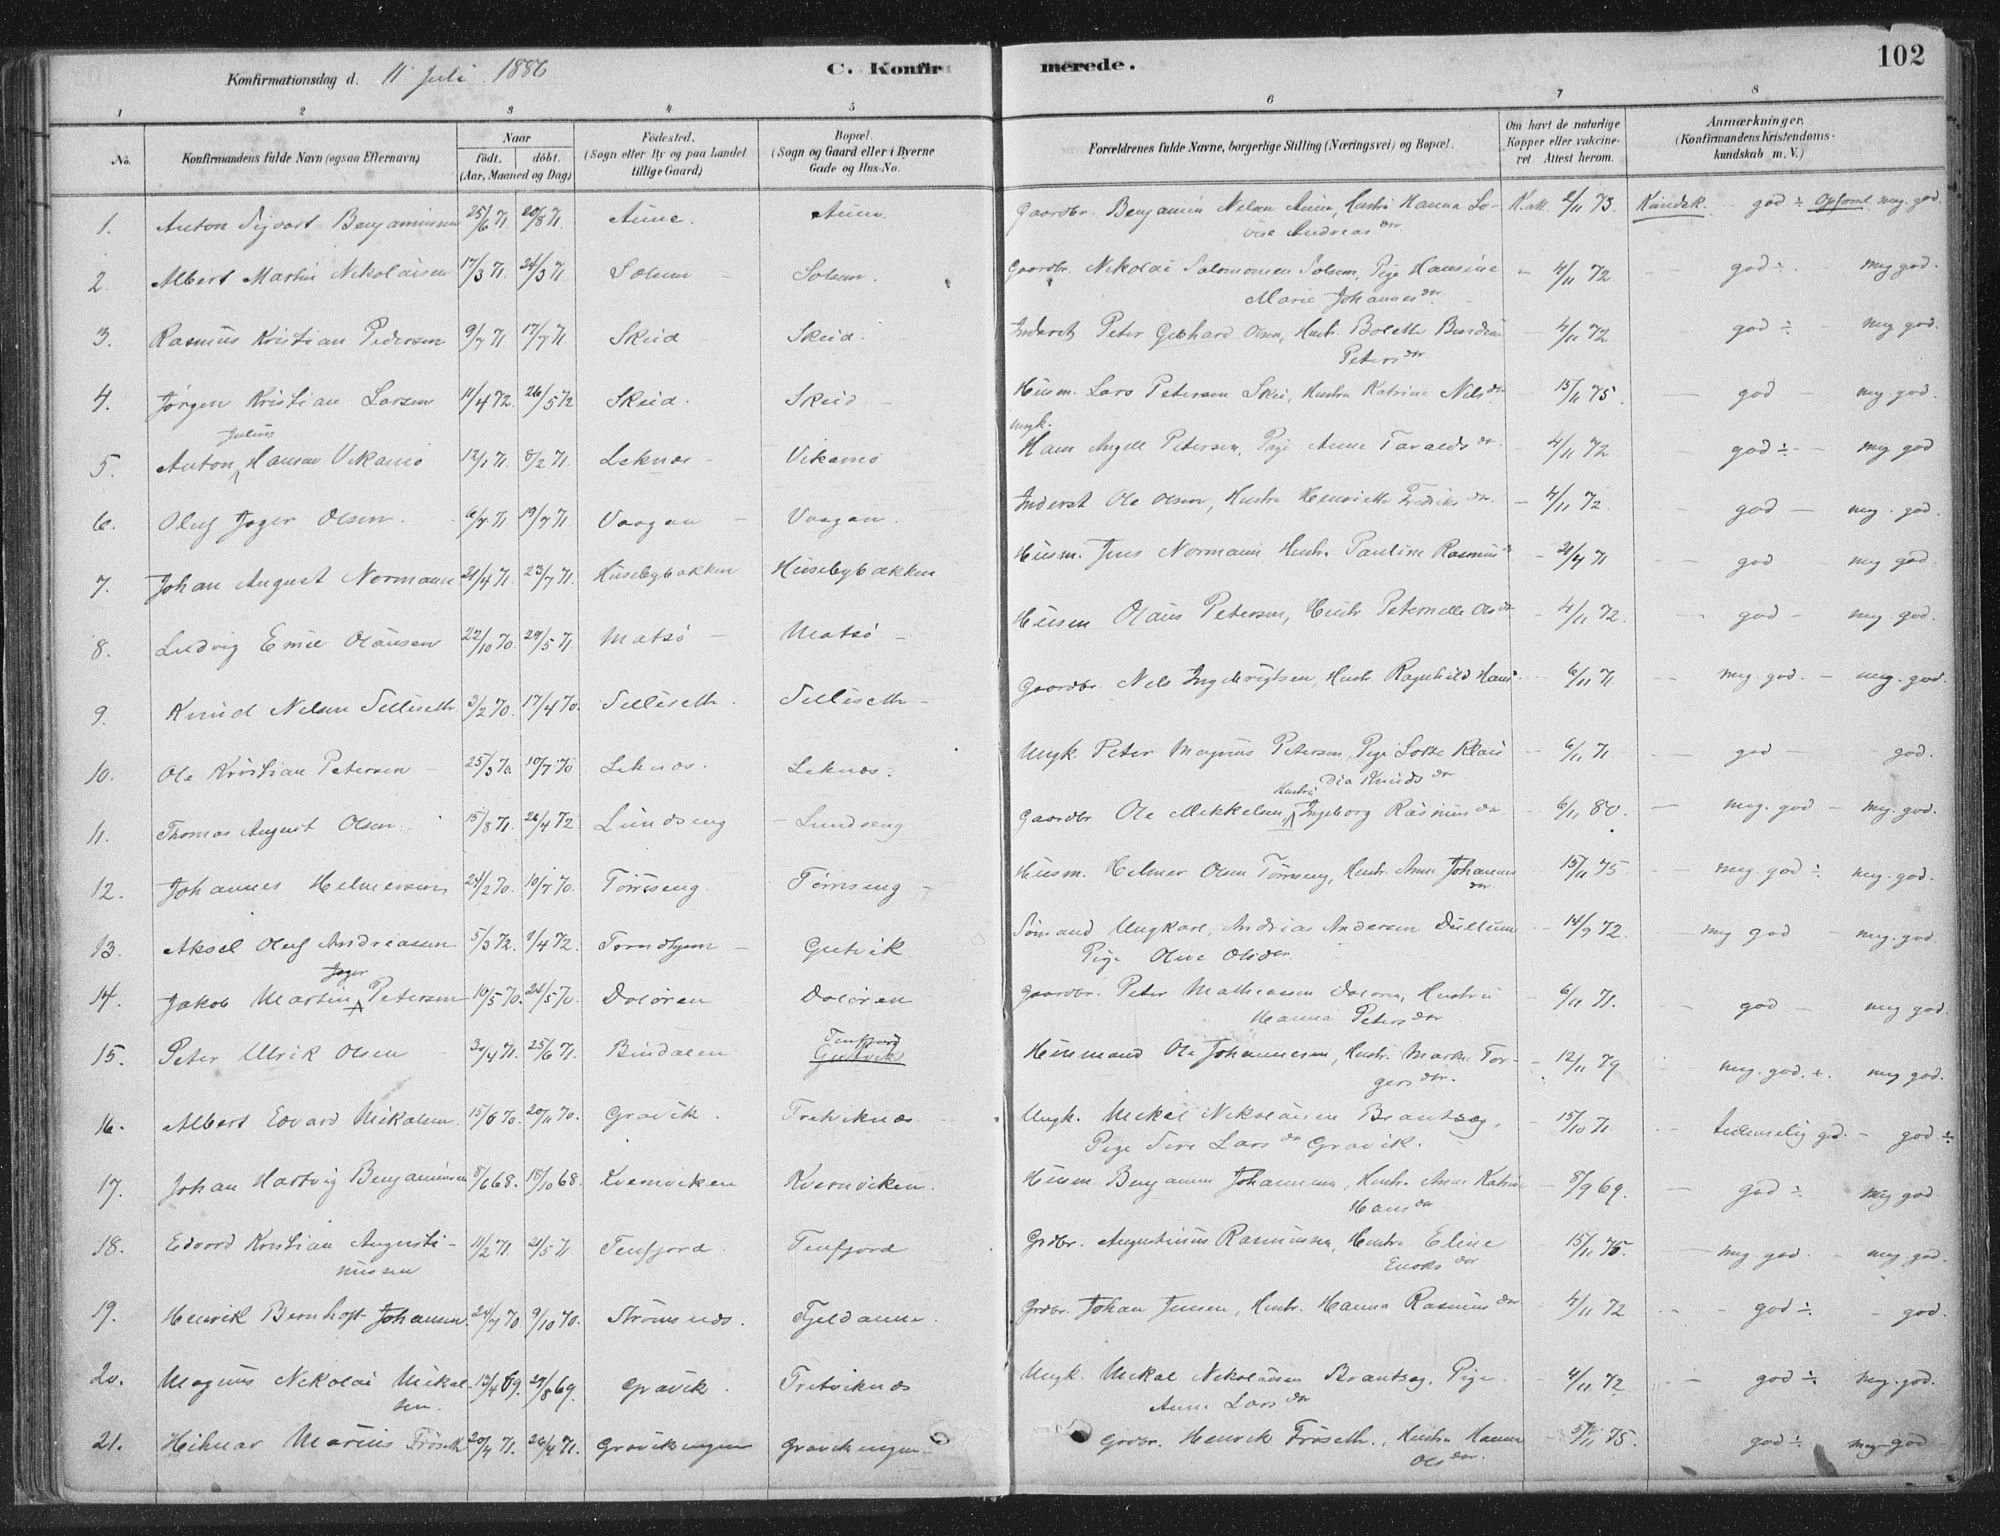 102
Konfirmationsdag d. 11 Juli 1886
C. Konfirmerede.
1 2 3 4 5 6 7 8
No.
Konfirmandens fulde Navn (ogsaa Efternavn)
Naar
født. døbt.
(Aar, Maaned og Dag)
Fødested.
(Sogn eller By og paa Landet
tillige Gaard)
Bopæl.
(Sogn og Gaard eller i Byerne
Gade og Hus-No.
Forældrenes fulde Navne, borgerlige Stilling (Næringsvei) og Bopæl.
Om havt de naturlige
Kopper eller vakcine-
ret Attest herom.
Anmærkninger.
(Konfirmandens Kristendoms-
kundskab m. V.)
1. Anton Sigvart Benjaminsen 25/6 71 20/8 71. Aune. Aune. Gaardbr. Benjamin Nilsen Aune, Hustru Hanna Lo- K. att. 2/11 73. Kundsk. god ÷ Opførsel meg. god.
vise Andreasdr.
2. Albert Martin Nikolaisen 17/3 71. 26/3 71. Solsem Solsem. Gaardbr. Nikolai Salomonsen Solsem, Pige Hansine - 4/11 72. god ÷ meg god.
Marie Johannesdr.
3. Rasmus Kristian Pedersen 9/7 71 17/7 71. Skeid Skeid. Inderst Peter Gebhard Olsen, Hustr. Bolette Peters dr - 4/11 72 god ÷ meg god.
4. Jørgen Kristian Larsen 11/4 72. 26/5 72 Skeid. Skeid Husm. Lars Petersen Skei, Hustru Katrine Nils dr - 15/11 75. god meg. god.
5. Anton Julius Hansen Vikamo 12/1 71. 5/2 71. Leknæs Vikamo Ungk. Hans Angell Petersen, Pige Anne Taralds dr. 4/11 72 god ÷ meg god
6. Oluf Jæger Olsen. 6/7 71 19/7 71. Vaagan Vaagan. Inderst Ole Olsen, Hustru Henriette Fredriks dr. - 4/11 72. god meg. god.
7. Johan August Normann 21/4 71. 23/7 71. Husebybakken Husebybakken Husm. Jens Normann Hustru Pauline Rasmus dr - 21/7 71 god meg god.
8. Ludvig Emil Olausen 22/10 70. 29/5 71 Matsø Matsø Husm Olaus Petersen, Hustr. Peternelle Ols dr - 4/11 72. god meg. god.
9. Knud Nilsen Selliseth 3/2 70. 17/4 70. Selliseth. Selliseth Gaardbr. Nils Ingebrigtsen, Hustr. Ragnhild Hans - 6/11 71 meg. god. meg. god.
10. Ole Kristian Petersen 25/3 70. 10/7 70 Leknæs. Leknæs. Ungk. Peter Magnus Petersen, Pige Lotte Klau 6/11 71 god god.
dia Knuds dr
11. Thomas August Olsen. 15/8 71. 26/4 72 Lundseng Lundseng Gaardbr Ole Mikkelsen Hustru Ingeborg Rasmus dr. 6/11 80. meg. god meg. god.
12. Johannes Helmersen 24/2 70. 10/7 70. Tørrseng. Tørrseng Husm. Helmer Olsen Tørrseng, Hustr. Anne Johannes dr - 15/11 75 meg. god ÷ meg. god.
13. Aksel Oluf Andreassen 5/3 72. 1/4 72. Trondhjem Gutvik Sømand Ungkarl, Andrias Andersen Dullum - 14/9 72. meg god meg. god
Pige Olive Olsdr.
14. Jakob Martin Jæger Petersen 10/5 70. 26/5 70. Daløren Daløren Gaardbr. Peter Mathiassen Daløren, Hustru 6/11 71. god meg god.
Hanna Petersdr
15. Peter Ulrik Olsen 30/4 71. 25/6 71. Bindalen Tenfjord Gutvik Husmand Ole Johannesen, Hustr. Marta Tor- 12/11 79 meg. god. ÷ meg god.
gersdr.
16. Albert Edvard Mikalsen. 15/6 70. 20/11 70. Gravik. Tretviknæs Ungk. Mikal Nikolaisen Brantsæg, - 15/10 71. temmelig god. god ÷
Pige Sire Lars dr Gravik.
17. Johan Hartvig Benjaminsen 8/6 68. 18/10 68. Kvernviken Kvernviken. Husm. Benjamin Johannesen, Hustr. Anne Katrine 8/9 69. god ÷ meg god
Hansdr
18. Edvard Kristian Augusti- 11/2 71. 21/5 71 Tenfjord. Tenfjord Grdbr. Augustinus Rasmussen, Hustru Eline - 15/11 75. meg god. meg. god.
nussen Enoks dr
19. Henrik Bernhoft Johansen 24/7 70 9/10 70. Strømsnes. Fjeldaune. Grdbr. Johan Jensen, Hustr. Hanna Rasmusdr 4/11 72 god ÷ god.
20. Magnus Nikolai Mikal 13/4 69. 29/8 69. Gravik. Tretviknæs Ungk. Mikal Nikolaisen Brantsæg, Pige 4/11 72 god ÷ meg. god.
sen. Anne Lars dr
21. Hilmar Marius Frøseth 20/4 71. 26/4 71. Gravikengen Gravikengen Grdbr. Henrik Frøseth, Hustru Hanna - 5/11 75. god ÷ meg god
Ols dr.